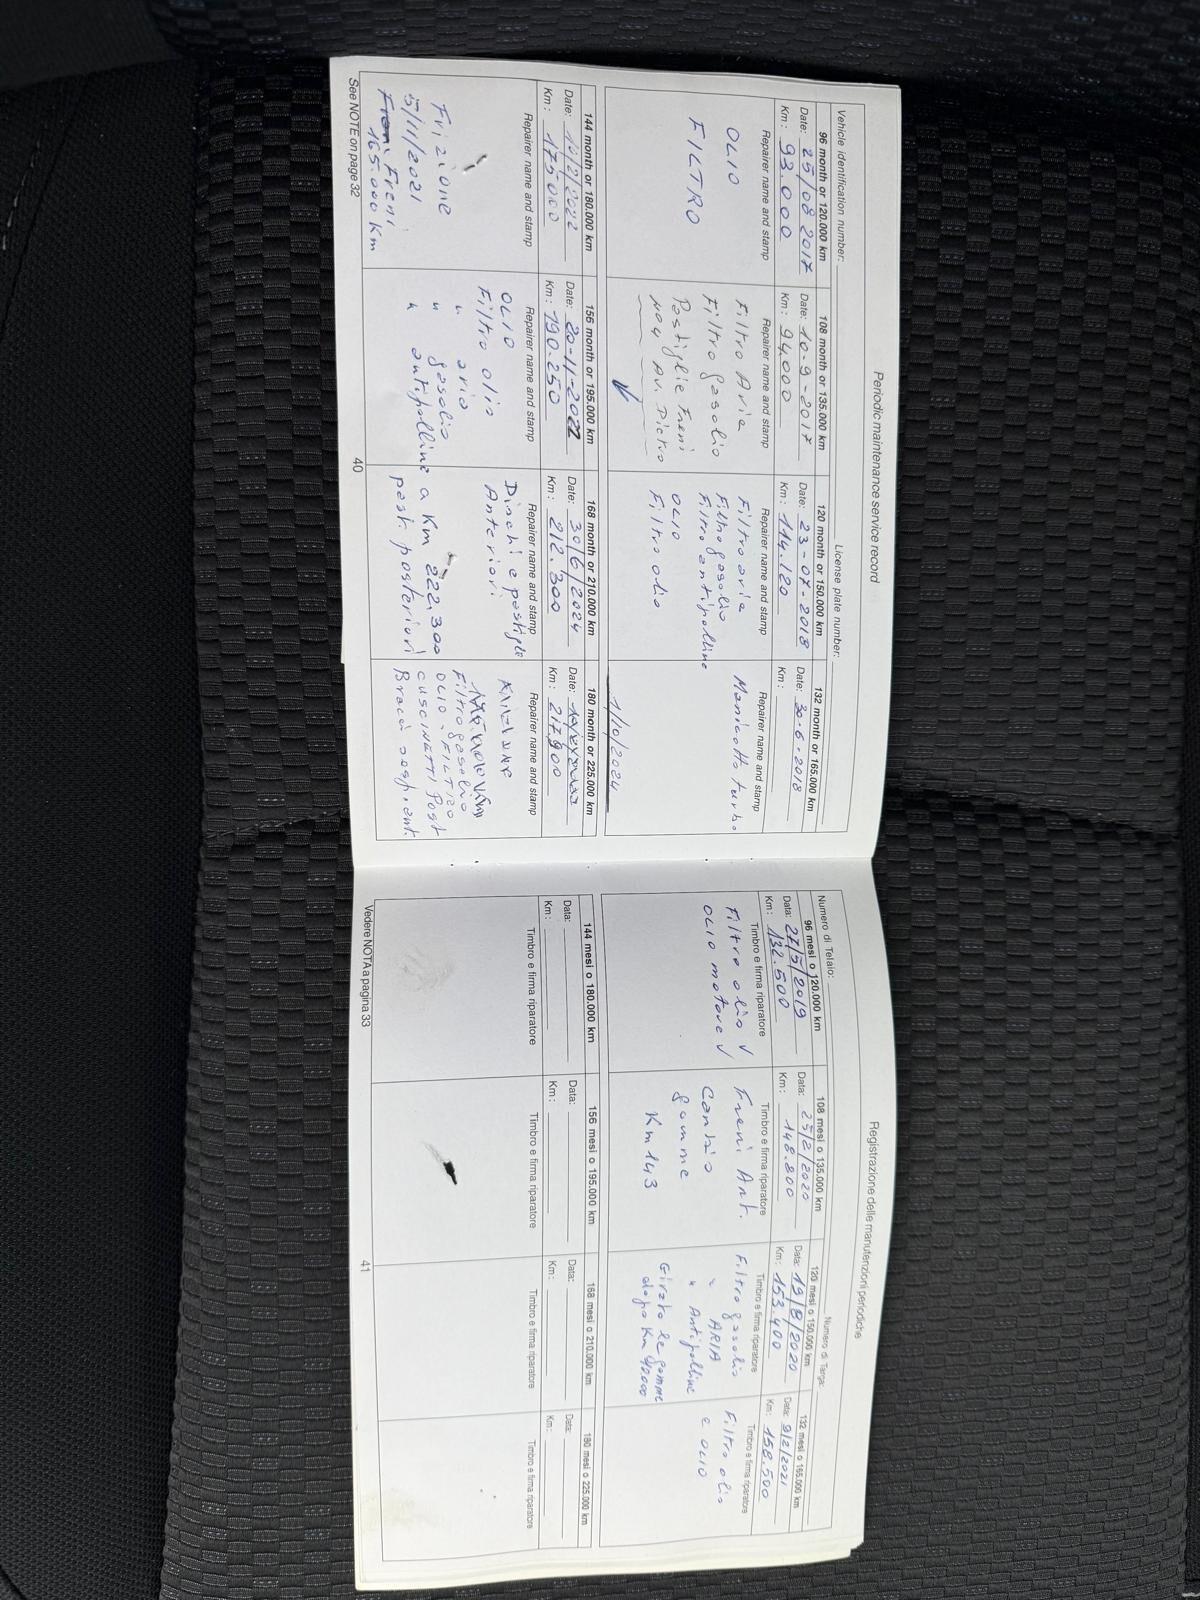 Periodic maintenance service record
Vehicle identification number:
License plate number:
96 month or 120.000 km
Date: 25/08 2017
Km: 93.000
Repairer name and stamp
OLIO
FILTRO
108 month or 135.000 km
Date: 10-9-2017
Km: 94.000
Repairer name and stamp
Filtro Aria
Filtro gasolio
Pastiglie Freni
Av. Dietro
120 month or 150.000 km
Date: 23-07-2018
Km: 114.120
Repairer name and stamp
Filtro aria
Filtro gasolio
Filtro antipolline
OLIO
Filtro olio
132 month or 165.000 km
Date: 30-6-2018
Km:
Repairer name and stamp
Manicotto turbo
1/10/2024
144 month or 180.000 km
Date: /2/2022
Km: 175.000
Repairer name and stamp
Frizione
5/11/2021
Freni
165.000 Km
156 month or 195.000 km
Date: 20-11-2022
Km: 190.250
Repairer name and stamp
OLIO
Filtro olio
" aria
" gasolio
" antipolline
168 month or 210.000 km
Date: 30/6/2024
Km: 212.300
Repairer name and stamp
Dischi e pastiglie
Anteriori
a Km 222.300
past. posteriori
180 month or 225.000 km
Date:
Km: 217.900
Repairer name and stamp
Filtro gasolio
OLIO - FILTRO
CUSCINETTI Post
Bracci
See NOTE on page 32
40
Registrazione delle manutenzioni periodiche
Numero di Telaio:
Numero di Targa:
96 mesi o 120.000 km
Data: 27/5/2019
Km: 132.500
Timbro e firma riparatore
Filtro olio √
OLIO motore √
108 mesi o 135.000 km
Data: 25/2/2020
Km: 148.800
Timbro e firma riparatore
Freni Ant.
Cambio
gomme
Km 143
120 mesi o 150.000 km
Data: 19/8/2020
Km: 153.400
Timbro e firma riparatore
Filtro gasolio
" ARIA
" Antipolline
Girato le gomme
dopo Km
132 mesi o 165.000 km
Data: 9/2/2021
Km: 158.500
Timbro e firma riparatore
Filtro olio
e OLIO
144 mesi o 180.000 km
Data:
Km:
Timbro e firma riparatore
156 mesi o 195.000 km
Data:
Km:
Timbro e firma riparatore
168 mesi o 210.000 km
Data:
Km:
Timbro e firma riparatore
180 mesi o 225.000 km
Data:
Km:
Timbro e firma riparatore
Vedere NOTA a pagina 33
41